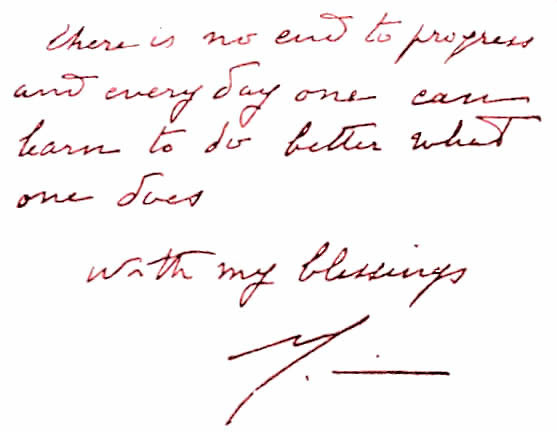 there is no end to progress
and every day one can
learn to do better what
one does
with my blessings